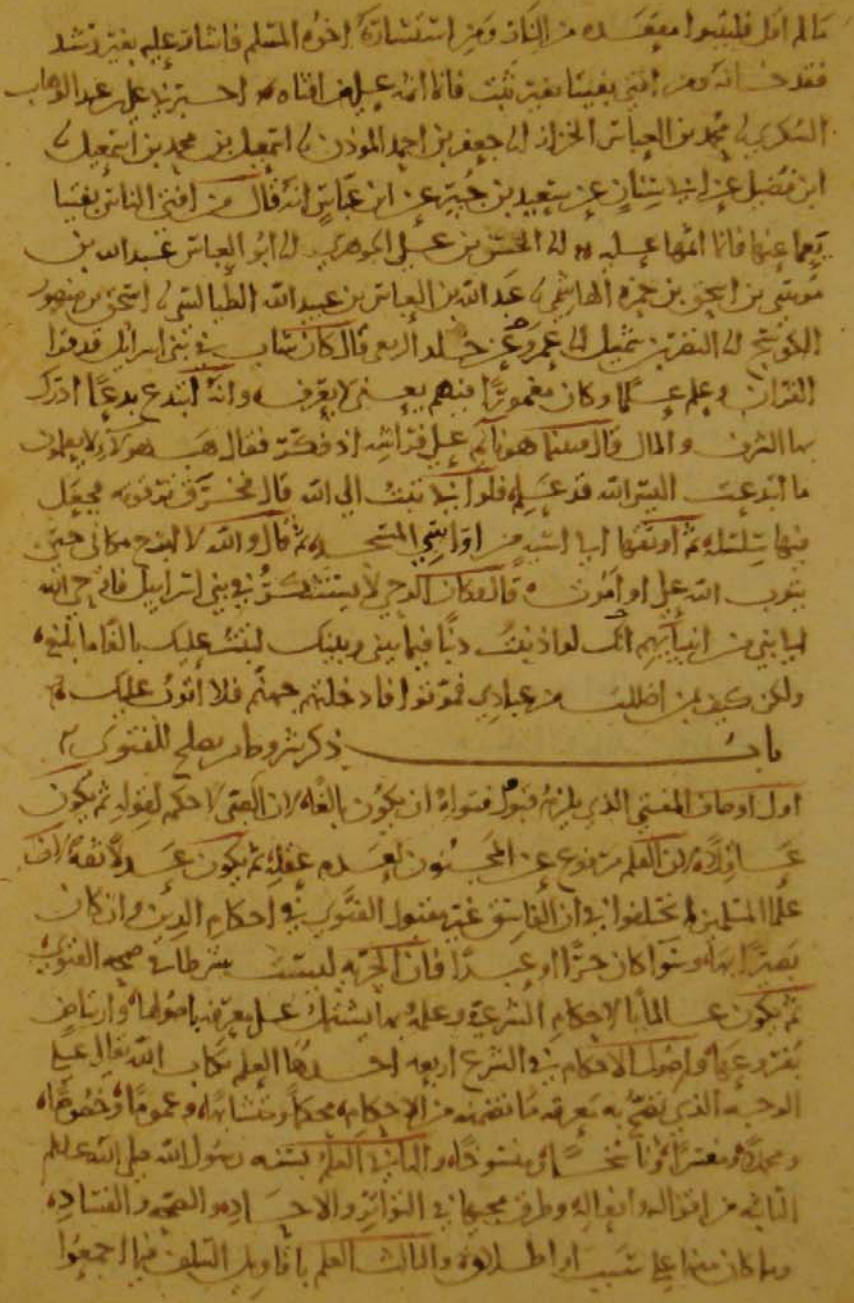 ما لم اقل فليتبوا مقعده من النار ومن استشاره اخوه المسلم فاشار عليه بغير رشد
فقد خانه ومن افتي بفتيا بغير ثبت فانما اثمه علي من افتاه اخبرني علي بن عبد الوهاب
السكري محمد بن العباس الخزاز جعفر بن احمد المؤذن اسمعيل بن محمد بن اسمعيل
ابن فضيل عن ابي سنان عن سعيد بن جبير عن ابن عباس انه قال من افتى الناس بفتيا
يعما عنها فانما اثمها عليه الحسن بن علي الجوهري ابو العباس عبد الله بن
موسى بن اسحق بن حمزه الهاشمي عبد الله بن العباس بن عبيد الله الطيالسي اسحق بن منصور
الكوسج النضر بن شميل عمرو عن خالد الربعي قال كان شاب في بني اسرائيل قد قرا
القران وعلم علما وكان مغمورا فيهم يعني لا يعرف وانه ابتدع بدعا ادرك
بها الشرف والمال قال فبينا هو نائم على فراشه اذ فكر فقال هب هولاء لا يعلمون
ما ابتدعت اليس الله قد علمه فلو اني تبت الي الله قال فخرق ترقوته فجعل
فيها سلسله ثم اوثقها الى اسيه من اواسي المسجد ثم قال والله لا ابرح مكاني حتى
يتوب الله علي او اموت قال وكان الوحي لا يستنكر في بني اسرايل فاوحى الله
الى نبي من انبيائهم انك لو اذنبت ذنبا فيما بيني وبينك لتبت عليك بالغا ما بلغ
ولكن كيف بمن اضللت من عبادي فموتوا فادخلتهم جهنم فلا اتوب عليك
باب ذكر شروط من يصلح للفتوى
اول اوصاف المفتي الذي يلزم قبول فتواه ان يكون بالغا لان الصبي لا حكم لقوله ثم يكون
عاقلا لان القلم مرفوع عن المجنون لعدم عقله ثم يكون عدلا ثقة لان
علما المسلمين لم تختلفوا في ان الفاسق غير مقبول الفتوى في احكام الدين وان كان
بصيرا بها وسوا كان حرا او عبدا فان الحريه ليست شرطا في صحه الفتوى
ثم يكون عالما بالاحكام الشرعية وعلمه بها يشتمل على معرفته باصولها وارتياض
بفروعها واصول الاحكام في الشرع اربعه احدها العلم بكتاب الله تعالى على
الوجه الذي تصح به معرفة ما تضمنه من الاحكام محكما ومتشابها وعموما وخصوصا
ومجملا ومفسرا وناسخا ومنسوخا والثاني العلم بسنه رسول الله صلى الله عليه وسلم
الثابته من اقواله وافعاله وطرق مجيها في التواتر والاحاد والصحه والفساد
وما كان منها على سبب او اطلاق والثالث العلم باقاويل السلف فيما اجمعوا